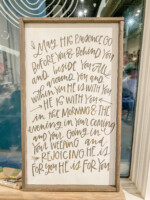 May HIS PRESENCE GO
BEFORE YOU & BEHIND YOU
AND beside YOU ALL
around YOU AND
WITHIN YOU HE IS WITH YOU
HE IS WITH YOU
IN THE MORNING & THE
evening IN YOUR coming
AND YOUR GOING IN
YOUR WEEPING AND
REJOICING HE IS
FOR YOU HE IS FOR YOU